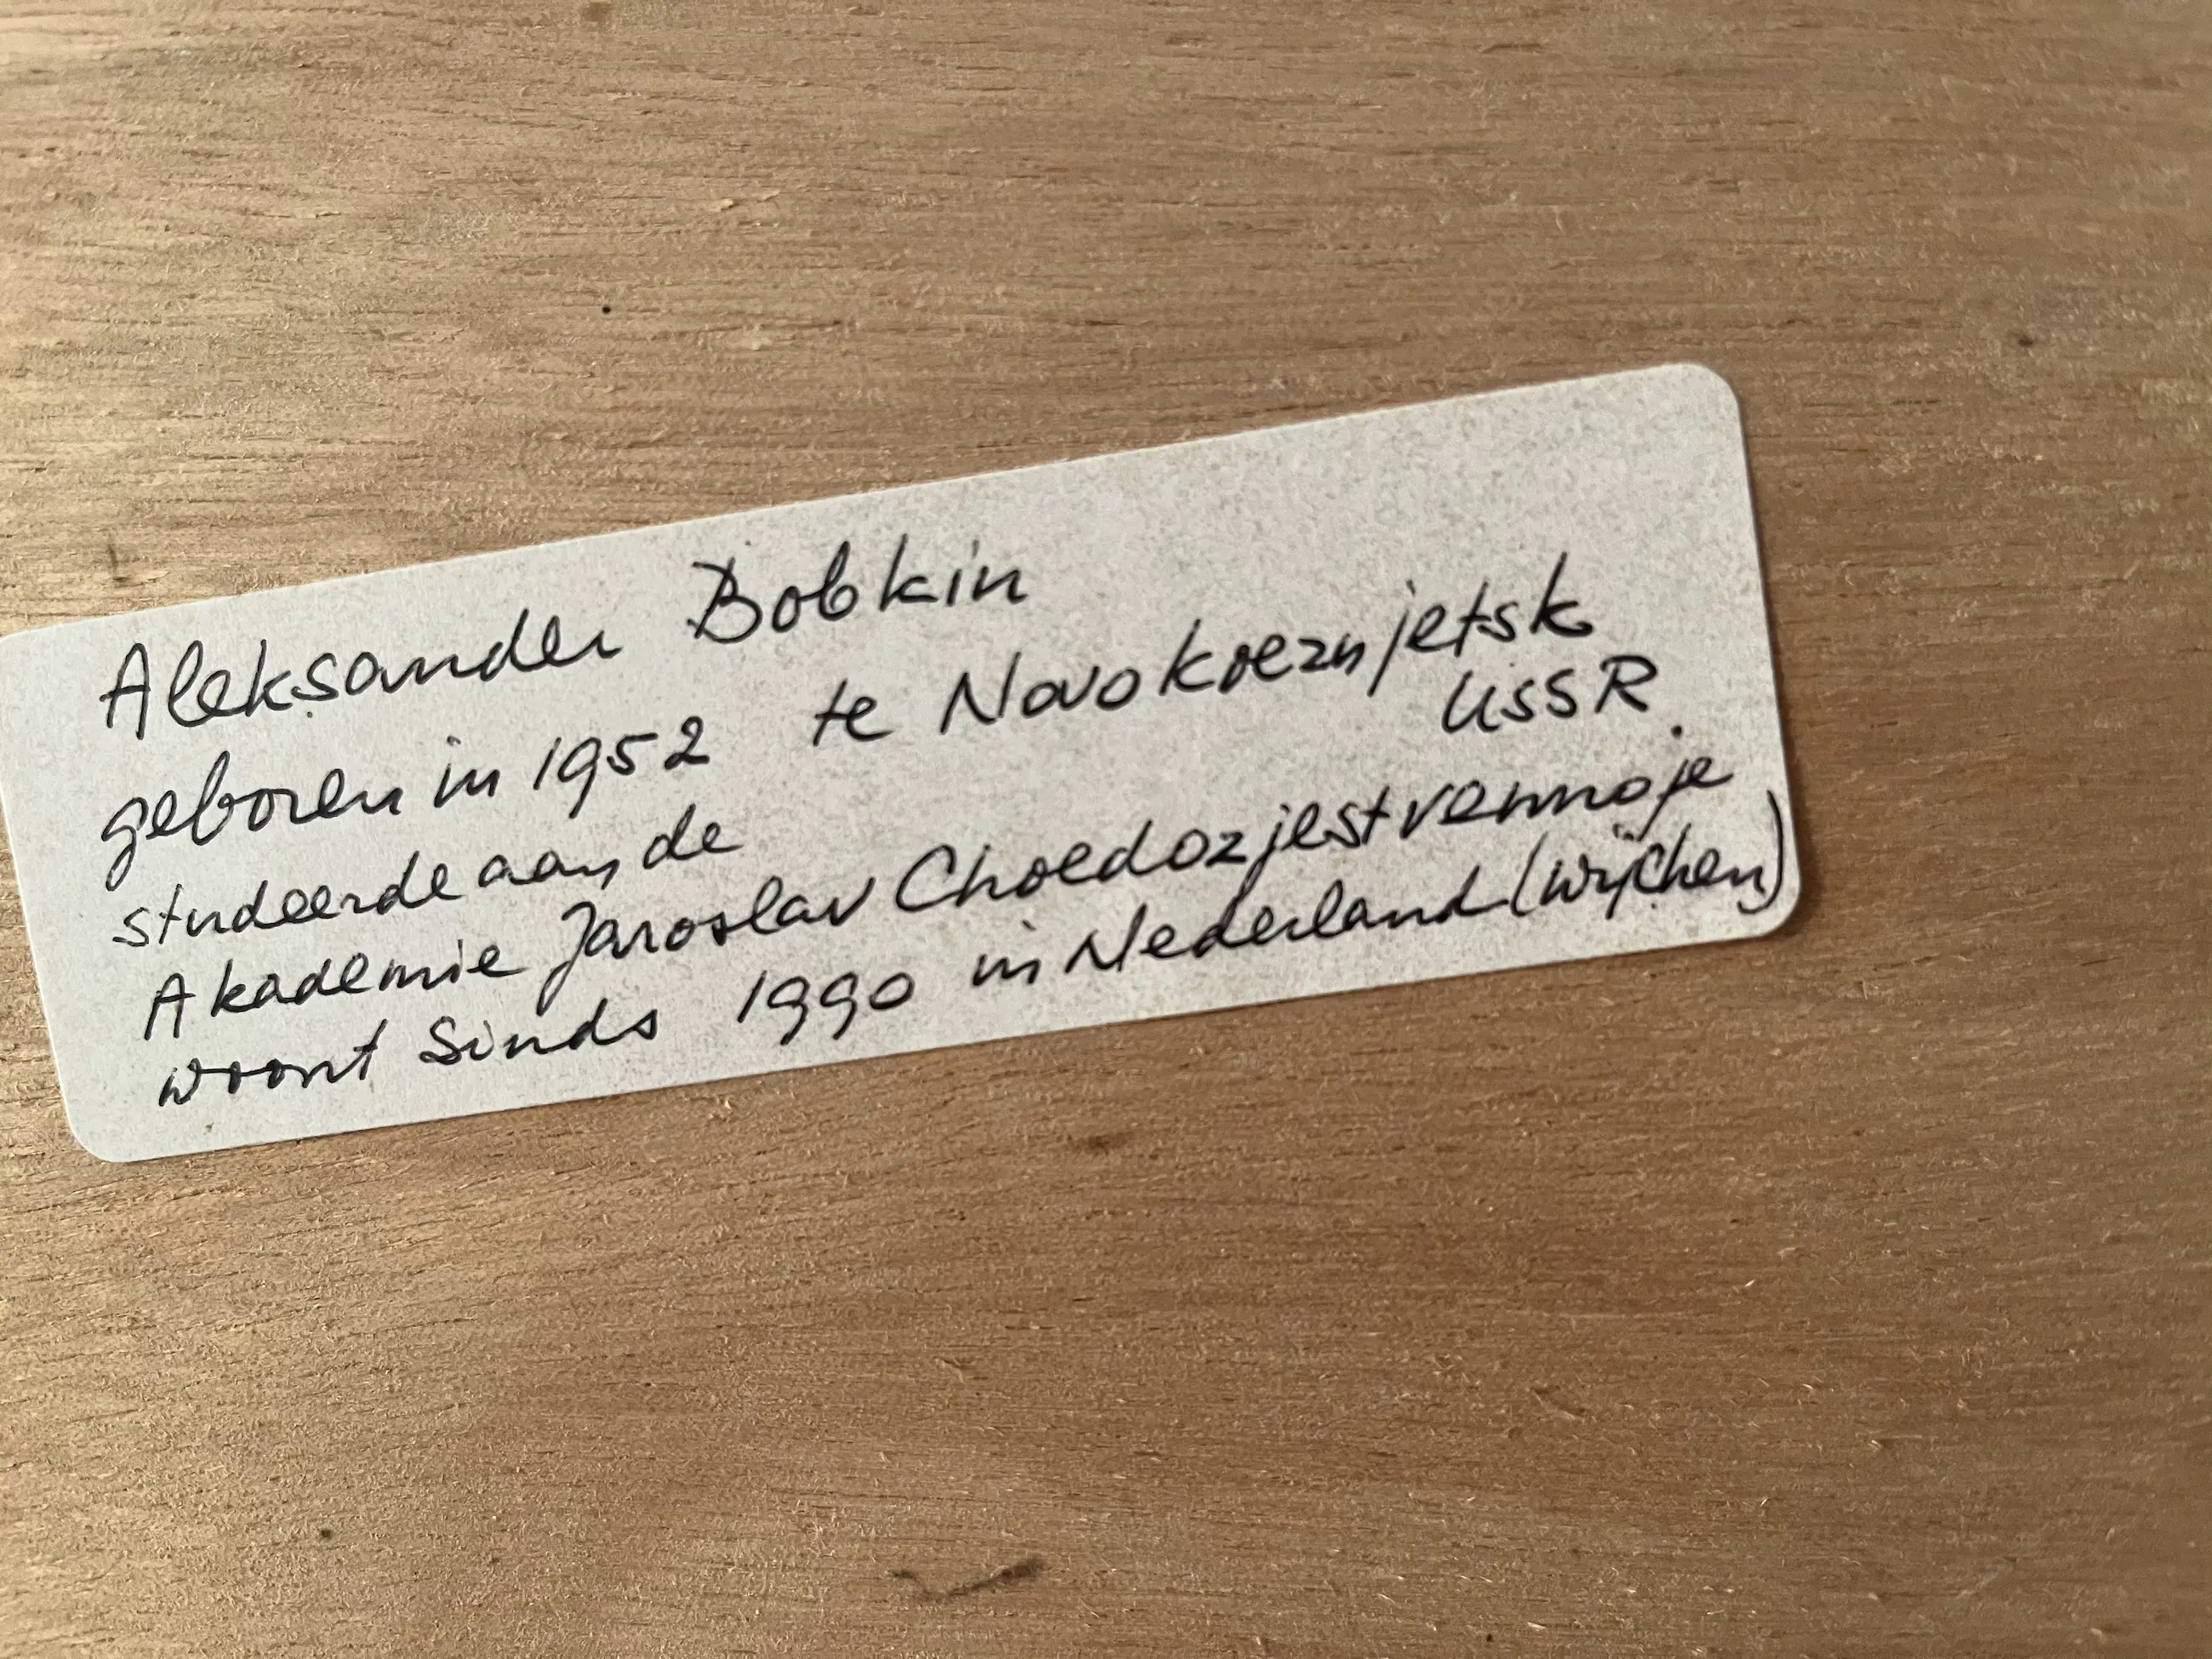 Aleksander Bobkin
geboren in 1952 te Novokoeznjetsk
USSR.
studeerde aan de
Akademie Jaroslav Choedozjestvennoje
woont sinds 1990 in Nederland (Wijchen)